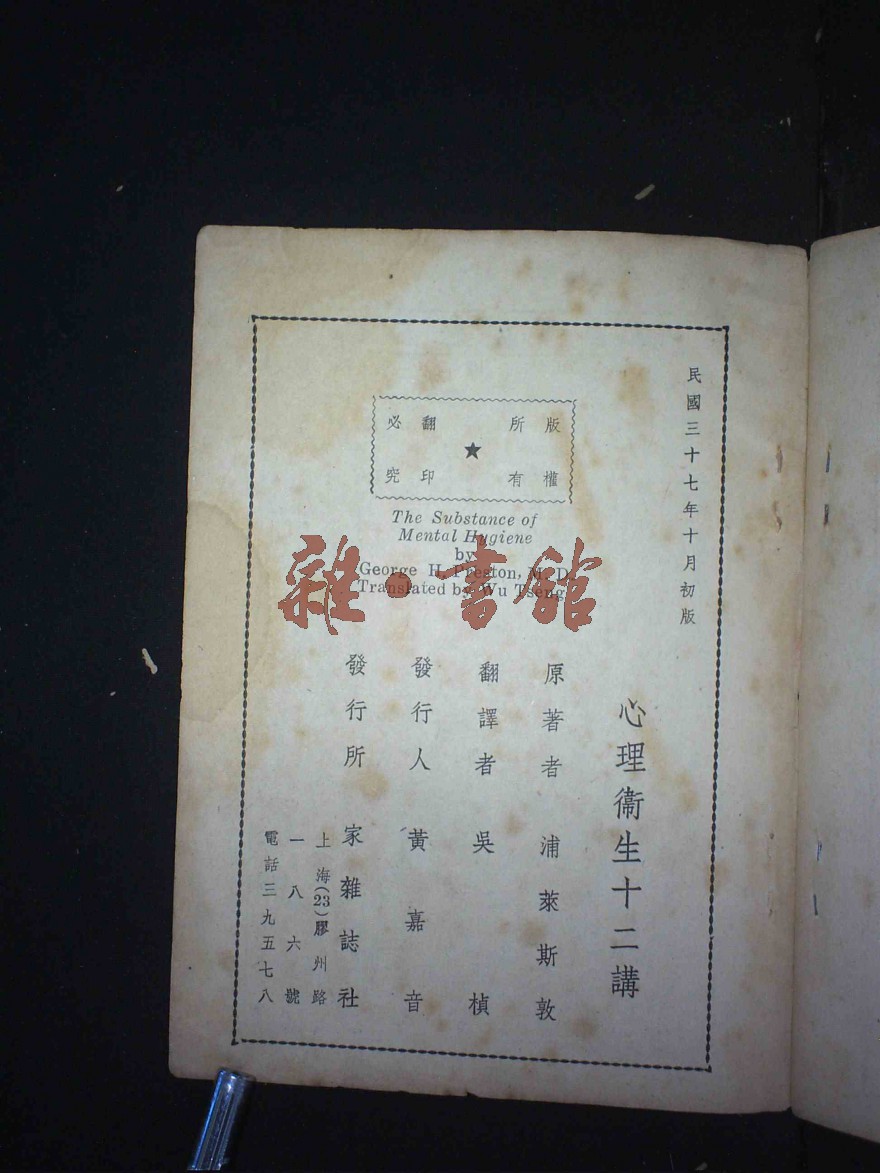 民國三十七年十月初版
版權
所有
翻印
必究
The Substance of
Mental Hygiene
by
George H. Preston, M. D.
Translated by Wu Tseng
雜·書館
心理衞生十二講
原著者 浦萊斯敦
翻譯者 吳楨
發行人 黃嘉音
發行所 家雜誌社
上海(23)膠州路
一八六號
電話三九五七八